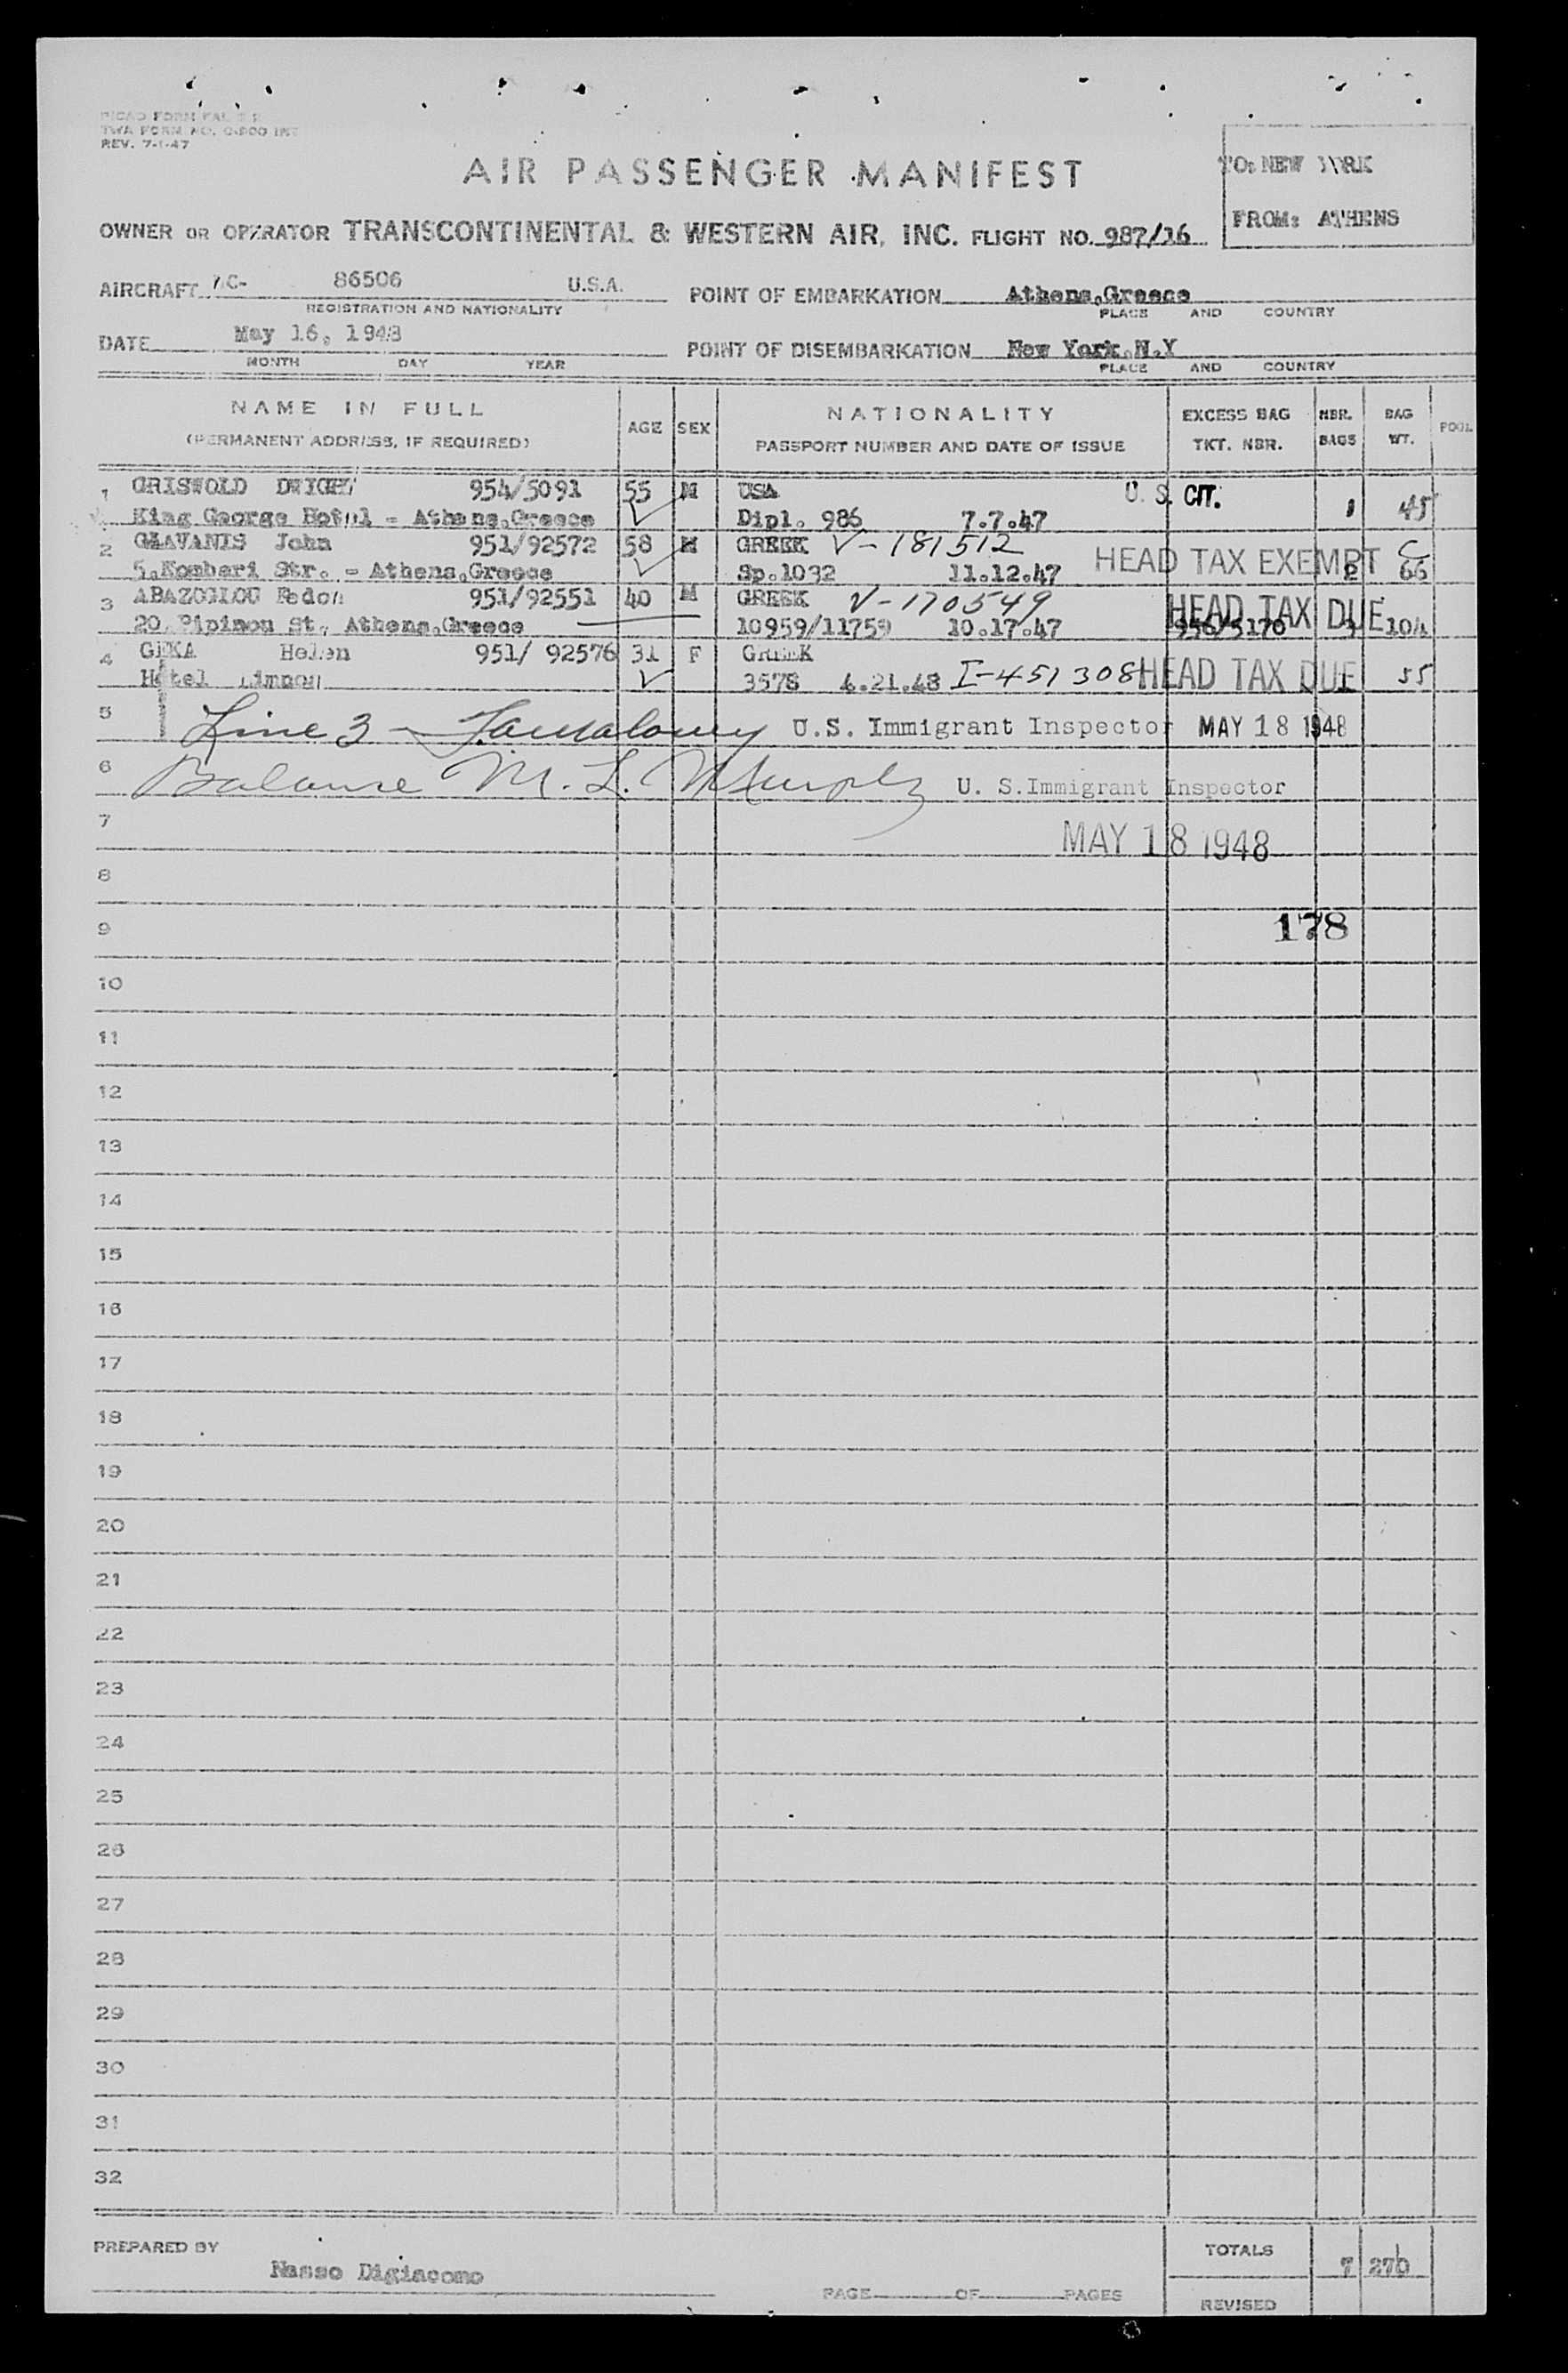 REV. 7-1-47
AIR PASSENGER MANIFEST
TO: NEW YORK
FROM: ATHENS
OWNER OR OPERATOR TRANSCONTINENTAL & WESTERN AIR, INC. FLIGHT NO. 987/16
AIRCRAFT NC- 86506 U.S.A. POINT OF EMBARKATION Athens,Greece
REGISTRATION AND NATIONALITY PLACE AND COUNTRY
DATE May 16, 1948 POINT OF DISEMBARKATION New York.N.Y
MONTH DAY YEAR PLACE AND COUNTRY
NAME IN FULL AGE SEX NATIONALITY EXCESS BAG NBR. BAG POOL
(PERMANENT ADDRESS, IF REQUIRED) PASSPORT NUMBER AND DATE OF ISSUE TKT. NBR. BAGS WT.
1 GRISWOLD DWIGHT 954/5091 55 M USA U.S. CIT.
King George Hotel - Athens,Greece Dipl. 986 7.7.47 1 45
2 GLAVANIS John 951/92572 58 M GREEK V-181512 HEAD TAX EXEMPT C
5,Kombari Str. - Athens,Greece Sp.1032 11.12.47 2 66
3 ABAZOGLOU Fedon 951/92551 40 M GREEK V-170549 HEAD TAX DUE
20, Pipinou St, Athens,Greece 10959/11759 10.17.47 956/5170 3 104
4 GEKA Helen 951/ 92576 31 F GREEK
Hotel 3578 4.21.48 I-451308 HEAD TAX DUE 1 55
5 Line 3 - U.S. Immigrant Inspector MAY 18 1948
6 Balance M. L. Murphy U. S.Immigrant Inspector
7 MAY 18 1948
8
9 178
10
11
12
13
14
15
16
17
18
19
20
21
22
23
24
25
26
27
28
29
30
31
32
PREPARED BY Nasso Digiacomo TOTALS 7 270
PAGE OF PAGES REVISED